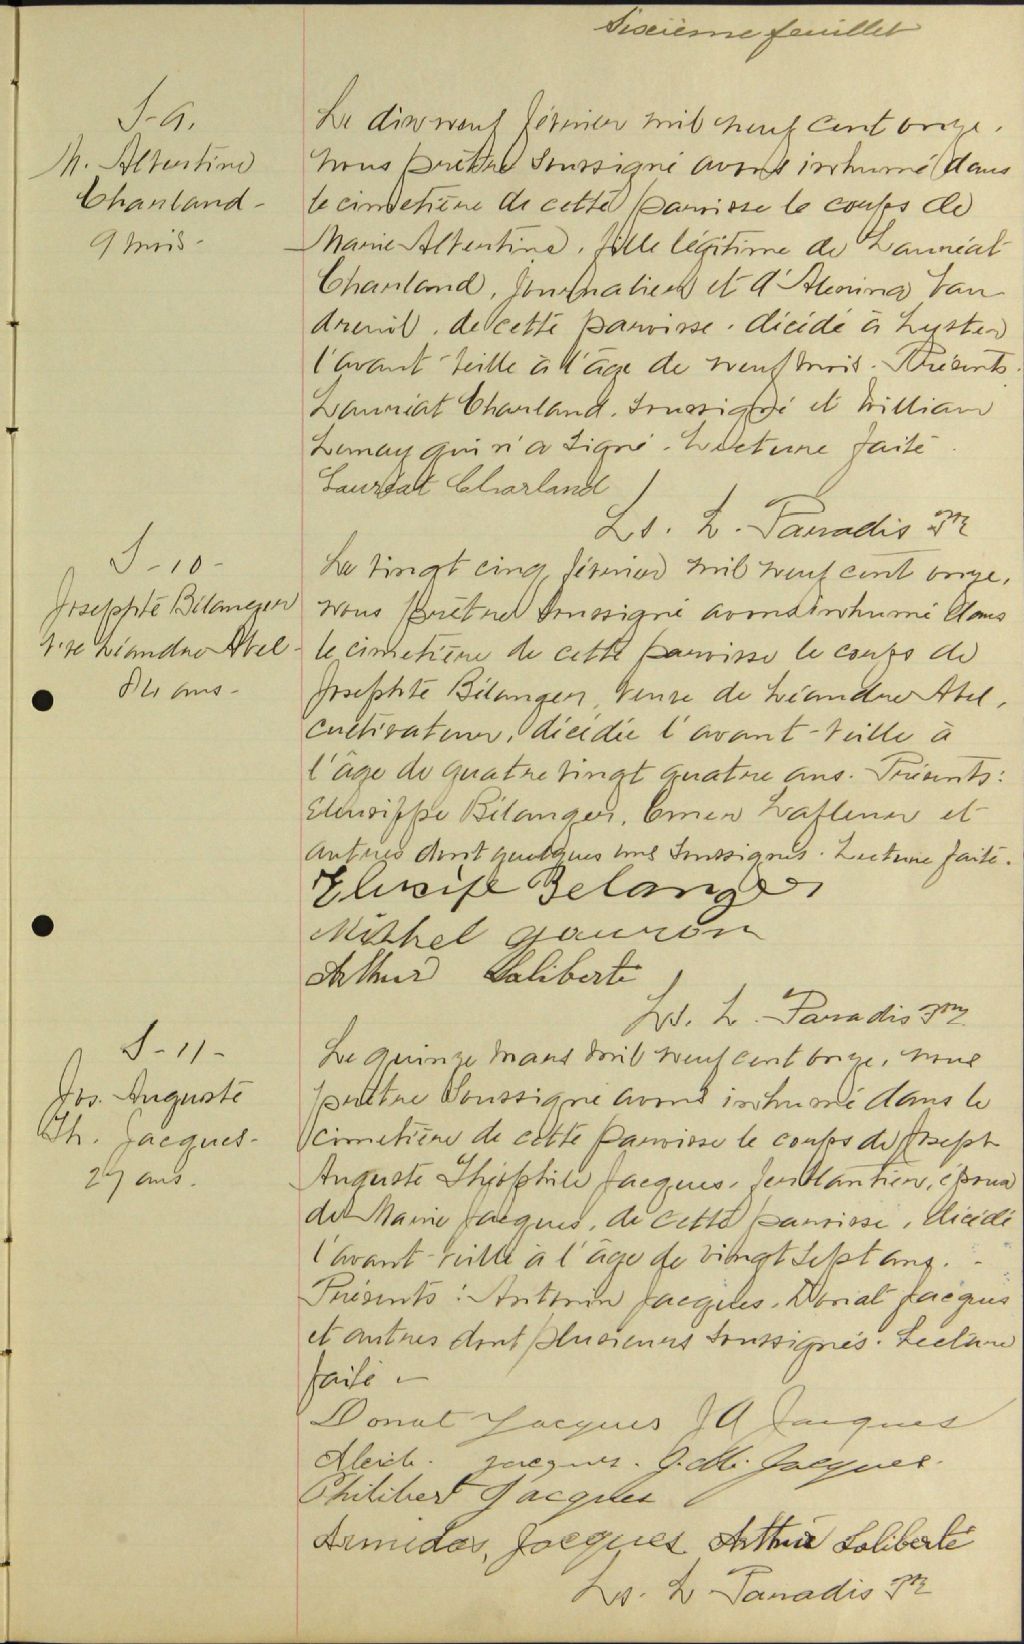 Sixième feuillet
S-9.
M. Albertine
Charland-
9 mois-
Le dix neuf février mil neuf cent onze,
nous prêtre soussigné avons inhumé dans
le cimetière de cette paroisse le corps de
Marie Albertine, fille légitime de Lauréat
Charland, journalier et d'Alexina Vau-
dreuil, de cette paroisse, décédé à Lyster
l'avant-veille à l'âge de neuf mois. Présents:
Lauréat Charland, soussigné et William
Lemay qui n'a signé. Lecture faite.
Lauréat Charland
Ls. L. Paradis Ptre
S-10-
Josephte Bélanger
Vve Léandre Abel-
84 ans-
Le vingt cinq février mil neuf cent onze,
nous prêtre soussigné avons inhumé dans
le cimetière de cette paroisse le corps de
Josephte Bélanger, veuve de Léandre Abel,
cultivateur, décédée l'avant-veille à
l'âge de quatre vingt quatre ans. Présents:
Eleusippe Bélanger, Omer Lafleur et
autres dont quelques uns soussignés. Lecture faite.
Elusipe Belanger
Michel gouron
Arthur Laliberté
Ls. L. Paradis Ptre
S-11-
Jos. Auguste
Th. Jacques-
27 ans.
Le quinze mars mil neuf cent onze, nous
prêtre soussigné avons inhumé dans le
cimetière de cette paroisse le corps de Joseph
Auguste Théophile Jacques, ferblantier, époux
de Marie Jacques, de cette paroisse, décédé
l'avant-veille à l'âge de vingt sept ans. -
Présents: Antonin Jacques, Donat Jacques
et autres dont plusieurs soussignés. Lecture
faite -
Donat Jacques J A Jacques
Alcide. Jacques. J. Jacques.
Philibert Jacques
Armidas, Jacques Arthur Laliberté
Ls. L. Paradis Ptre